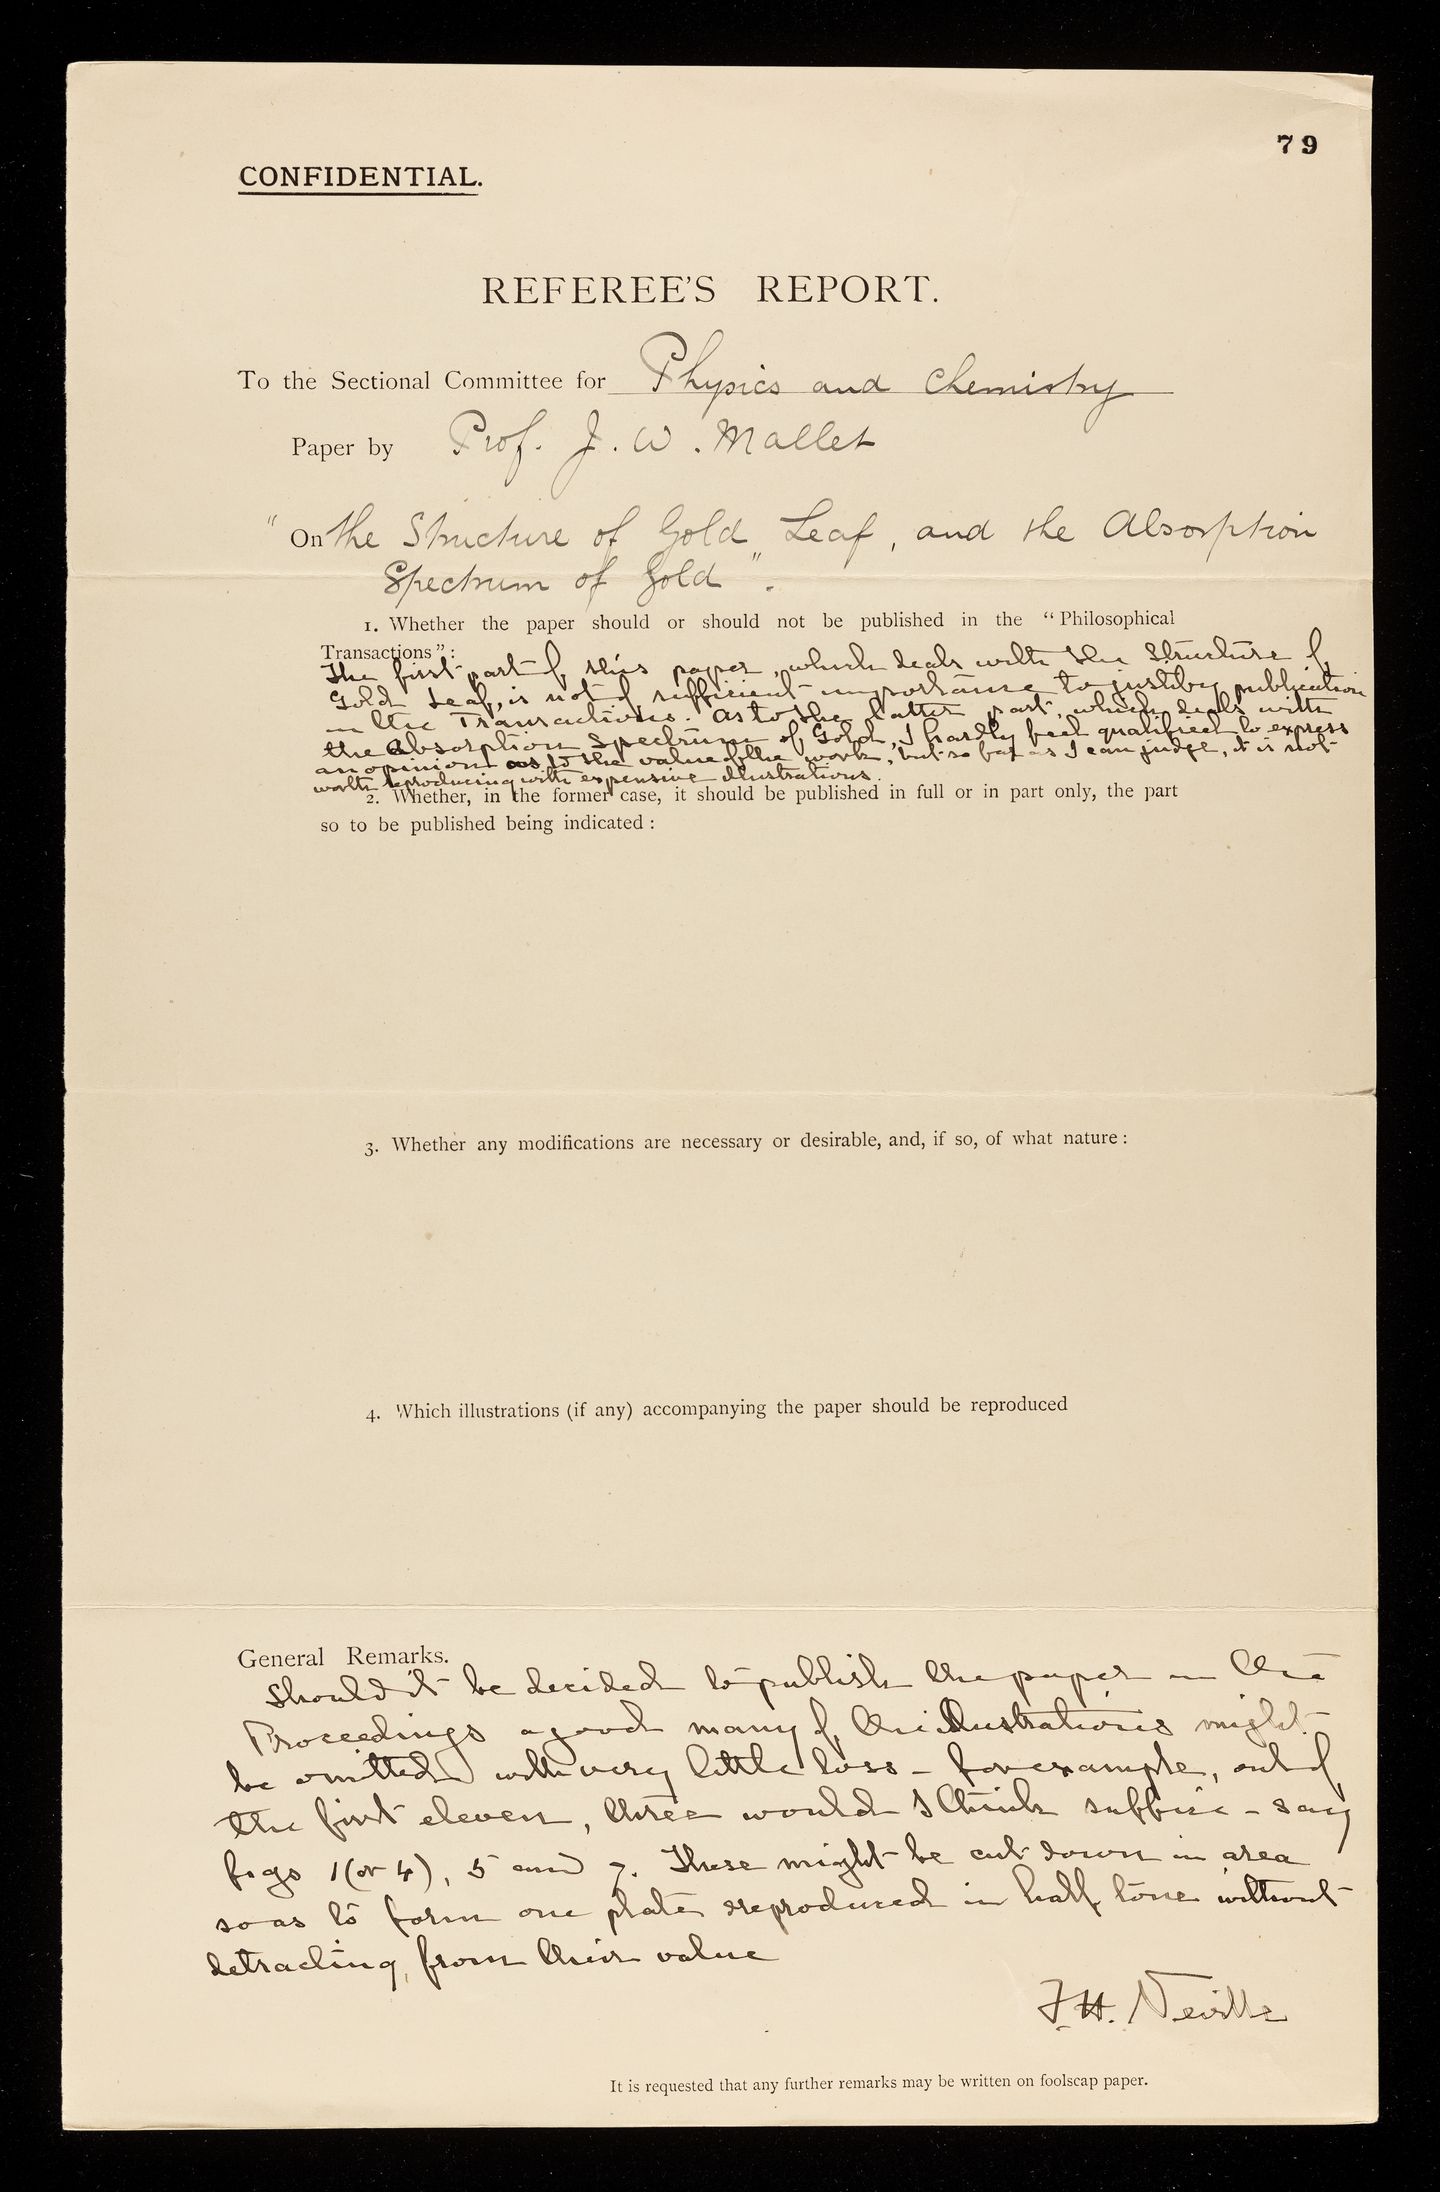 79
CONFIDENTIAL.
REFEREE'S REPORT.
To the Sectional Committee for Physics and Chemistry
Paper by Prof. J. W. Mallet
"On the Structure of Gold Leaf, and the Absorption
Spectrum of Gold".
1. Whether the paper should or should not be published in the "Philosophical
Transactions":
The first part of this paper, which deals with the Structure of
Gold Leaf, is not of sufficient importance to justify publication
in the Transactions. As to the latter part, which deals with
the Absorption Spectrum of Gold, I hardly feel qualified to express
an opinion as to the value of the work, but so far as I can judge, it is not
worth reproducing with expensive illustrations.
2. Whether, in the former case, it should be published in full or in part only, the part
so to be published being indicated:
3. Whether any modifications are necessary or desirable, and, if so, of what nature:
4. Which illustrations (if any) accompanying the paper should be reproduced
General Remarks.
Should it be decided to publish the paper in the
Proceedings a good many of the illustrations might
be omitted with very little loss - for example, out of
the first eleven, three would I think suffice - say
figs 1 (or 4), 5 and 7. These might be cut down in area
so as to form one plate reproduced in half tone without
detracting from their value
F.H. Neville
It is requested that any further remarks may be written on foolscap paper.